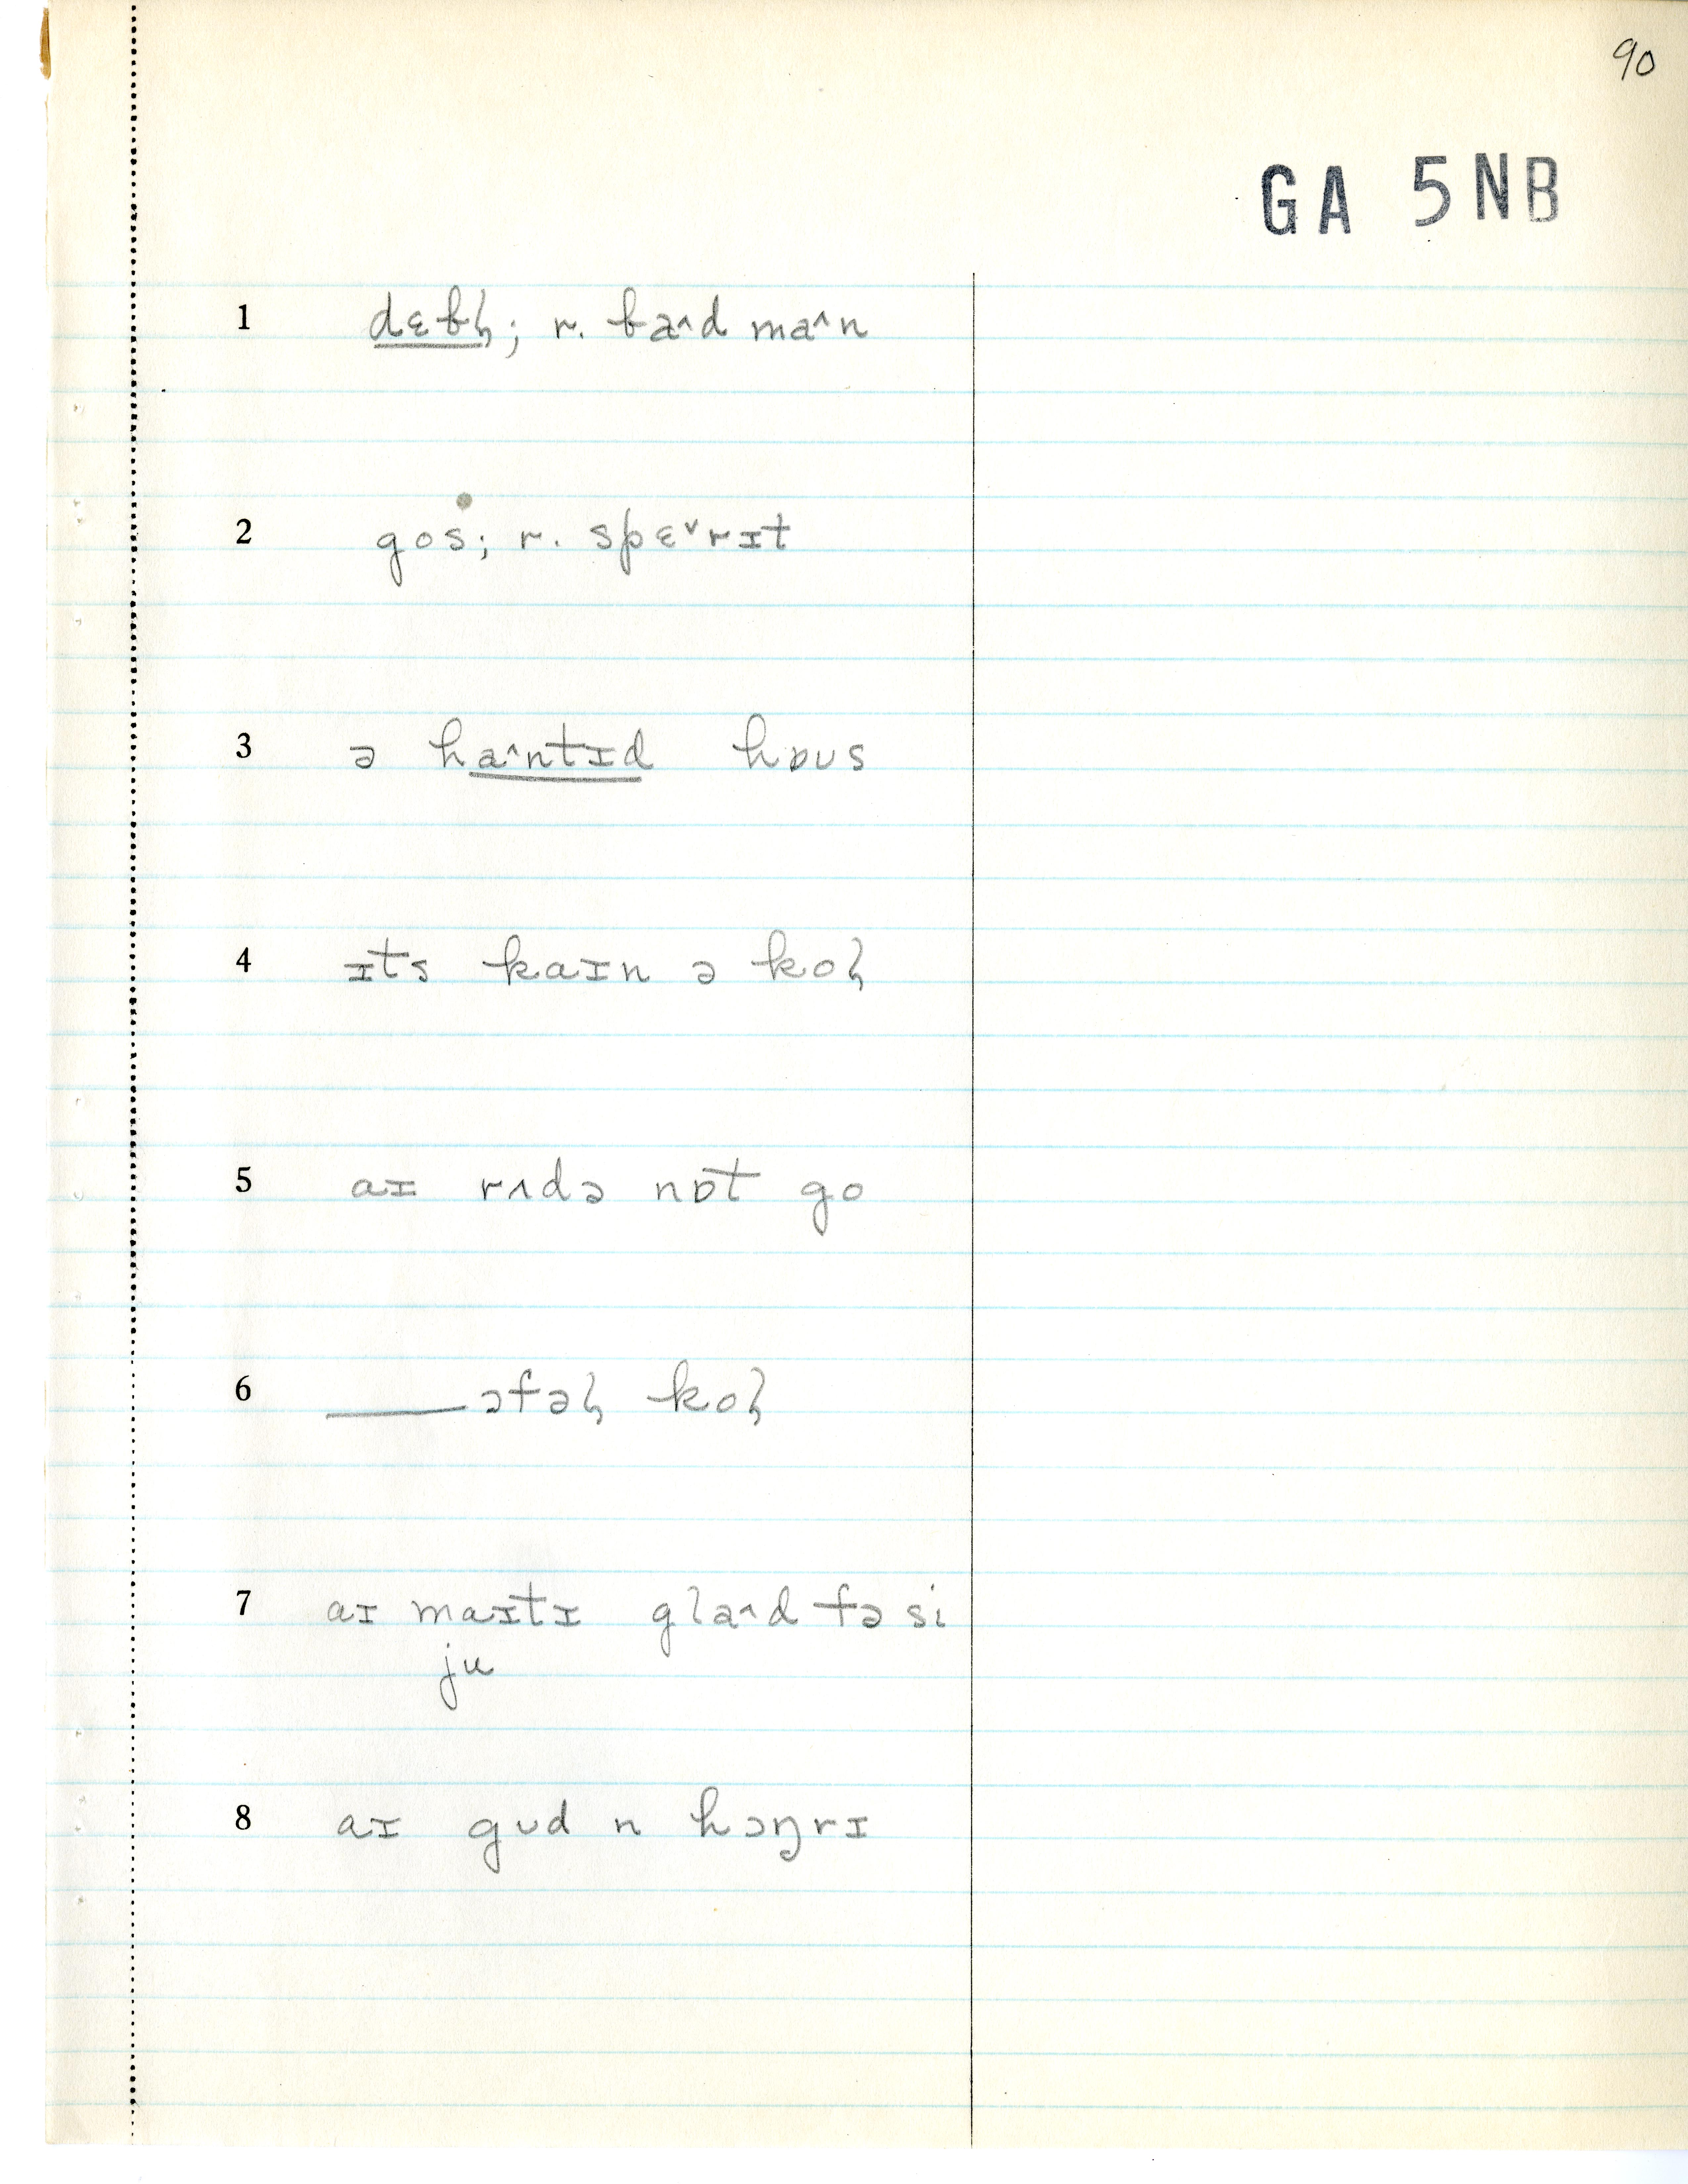 90
GA 5NB
1 dɛbl̩; r. ba^d ma^n
2 gos; r. spɛ˅rɪt
3 ə ha^ntɪd hɒʊs
4 ɪts kaɪn ə kol̩
5 aɪ rʌdə nɒt go
6 ___əfəl̩ kol̩
7 aɪ maɪtɪ gla^d fə si
ju
8 aɪ gʊd n həŋrɪ